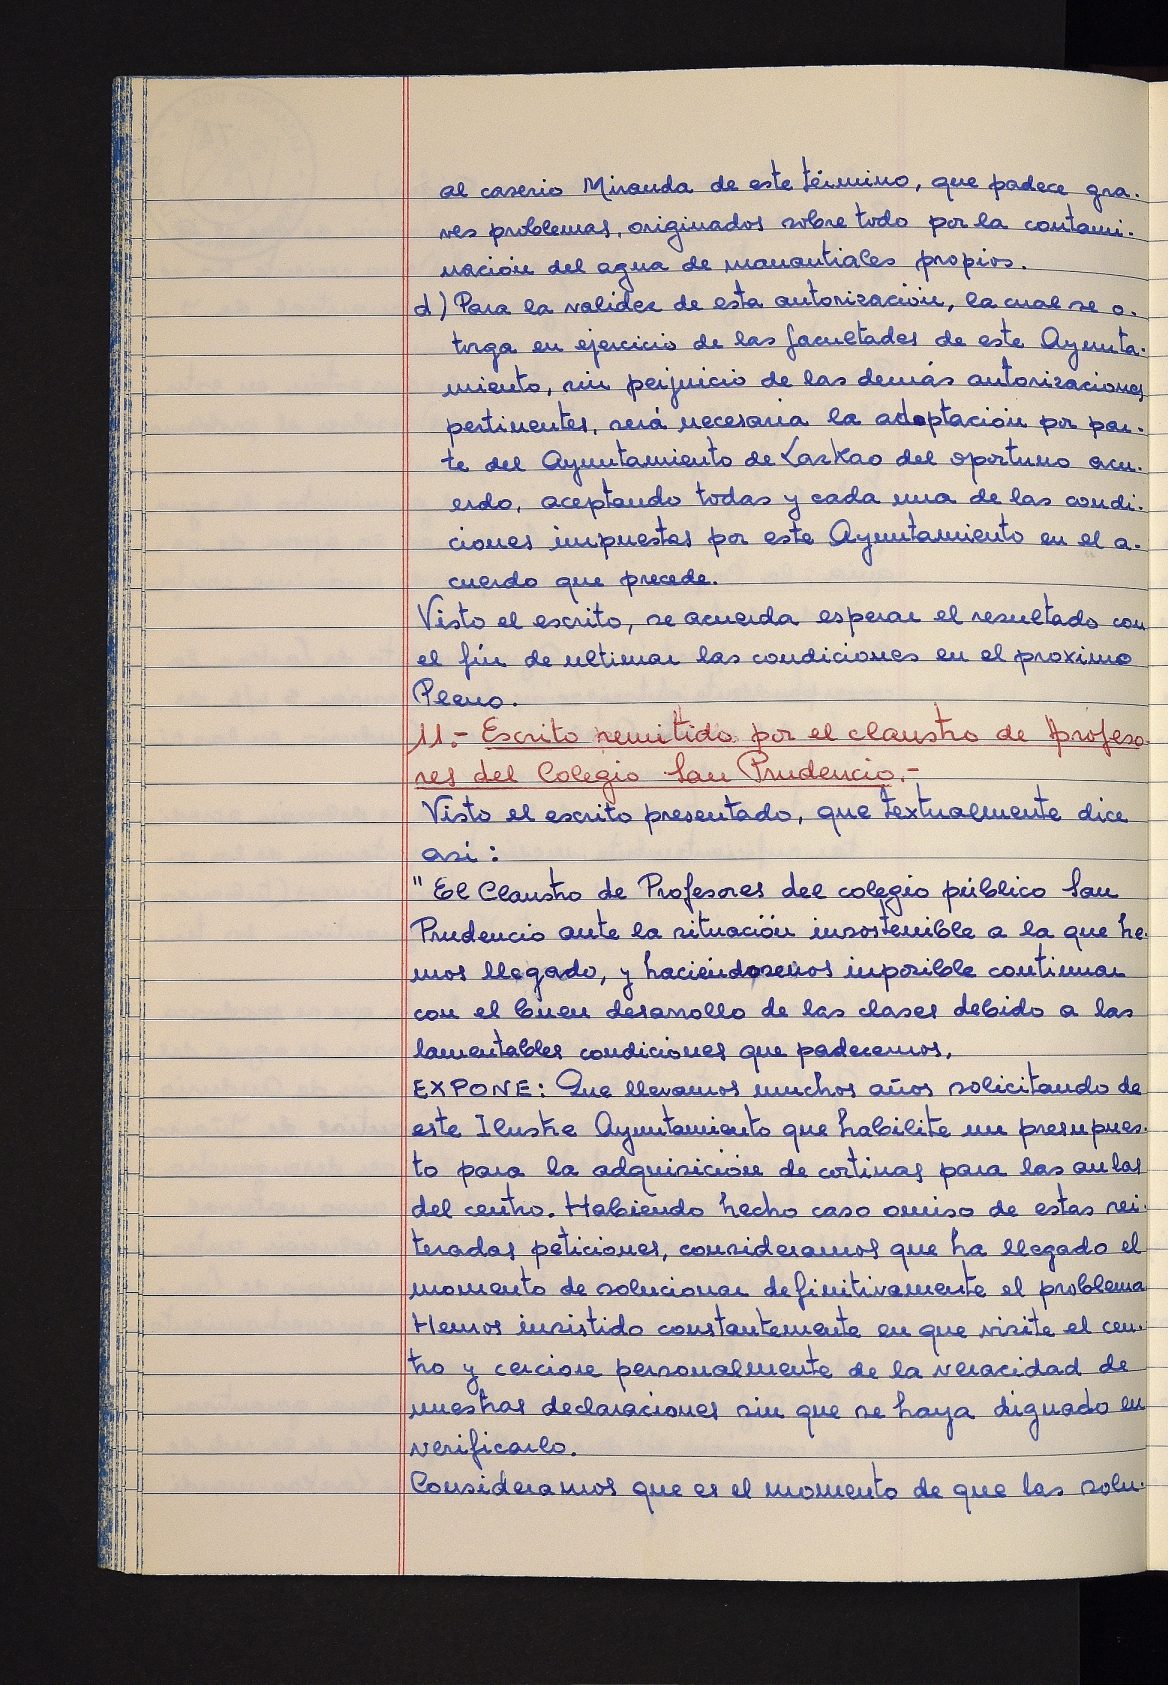 al caserio Miranda de este término, que padece gra-
ves problemas, originados sobre todo por la contami-
nación del agua de manantiales propios.
d) Para la validez de esta autorización, la cual se o-
torga en ejercicio de las facultades de este Ayunta-
miento, sin perjuicio de las demás autorizaciones
pertinentes, será necesaria la adoptación por par-
te del Ayuntamiento de Lazkao del oportuno acu-
erdo, aceptando todas y cada una de las condi-
ciones impuestas por este Ayuntamiento en el a-
cuerdo que precede."
Visto el escrito, se acuerda esperar el resultado con
el fín de ultimar las condiciones en el proximo
Pleno.
11.- Escrito remitido por el claustro de profeso-
res del Colegio San Prudencio.-
Visto el escrito presentado, que textualmente dice
asi:
" El Claustro de Profesores del colegio público San
Prudencio ante la situación insostenible a la que he-
mos llegado, y haciéndosenos imposible continuar
con el buen desarrollo de las clases debido a las
lamentables condiciones que padecemos,
EXPONE: Que llevamos muchos años solicitando de
este Ilustre Ayuntamiento que habilite un presupues-
to para la adquisición de cortinas para las aulas
del centro. Habiendo hecho caso omiso de estas rei-
teradas peticiones, consideramos que ha llegado el
momento de solucionar definitivamente el problema
Hemos insistido constantemente en que visite el cen-
tro y cerciore personalmente de la veracidad de
nuestras declaraciones sin que se haya dignado en
verificarlo.
Consideramos que es el momento de que las solu-